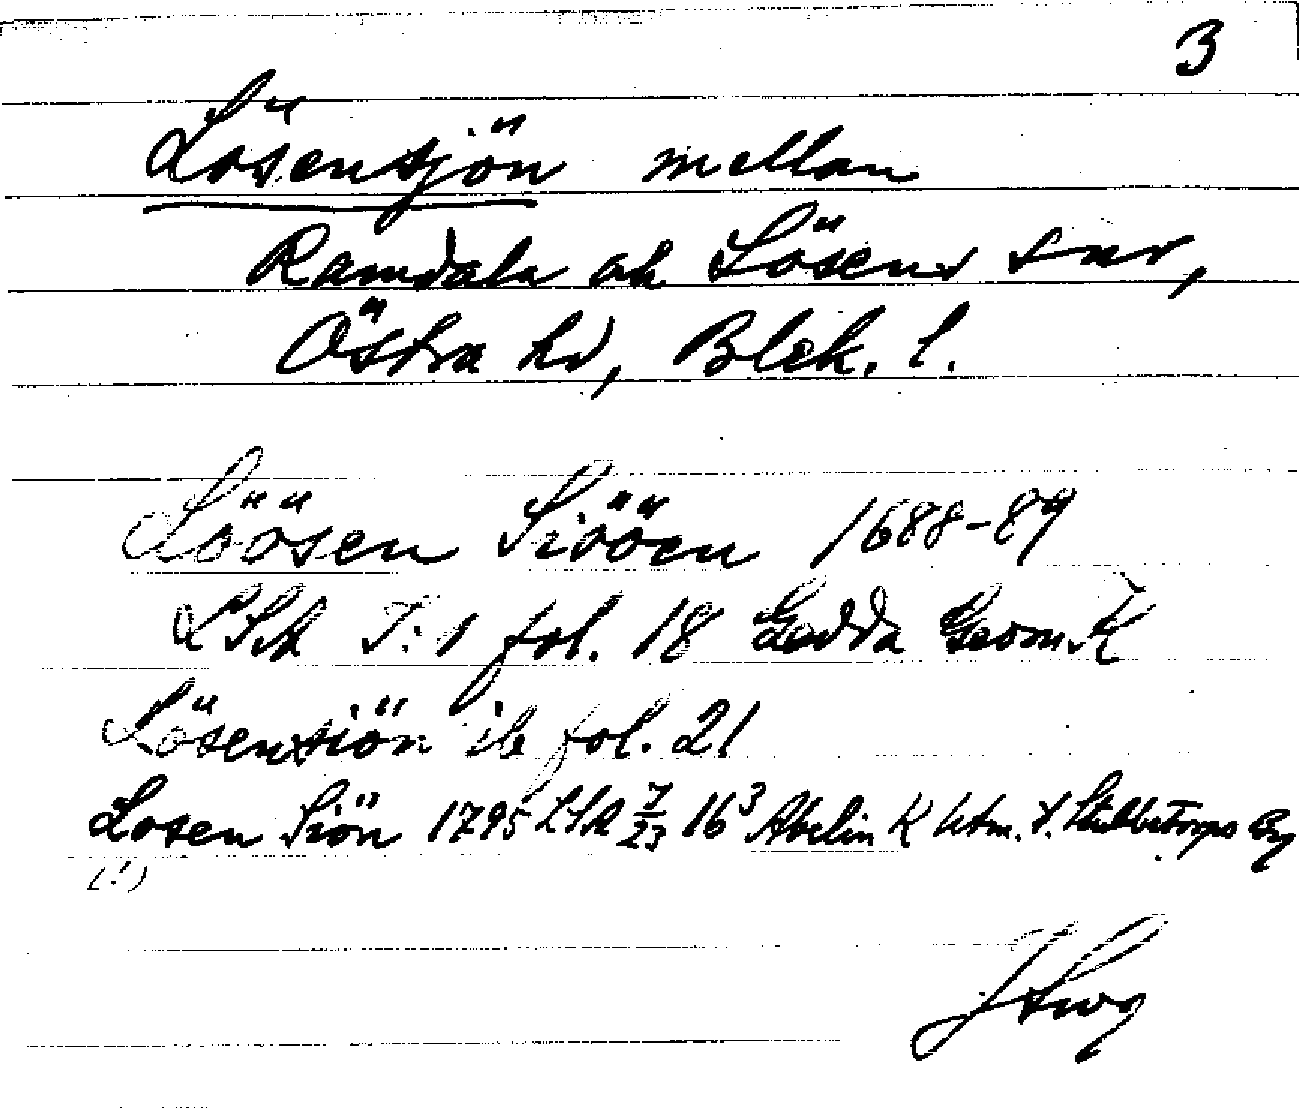 3
Lösensjön mellan
Ramdala och Lösens snr,
Östra hd, Blek. l.
Löösen Siööen 1688-89
LSA I:1 fol. 18 Gedda Geom. K
Lösensiön ib fol. 21
Losen Siön 1795 LSA 7/23 16³ Abelin K Utm. t. Stubbetorps By
(!)